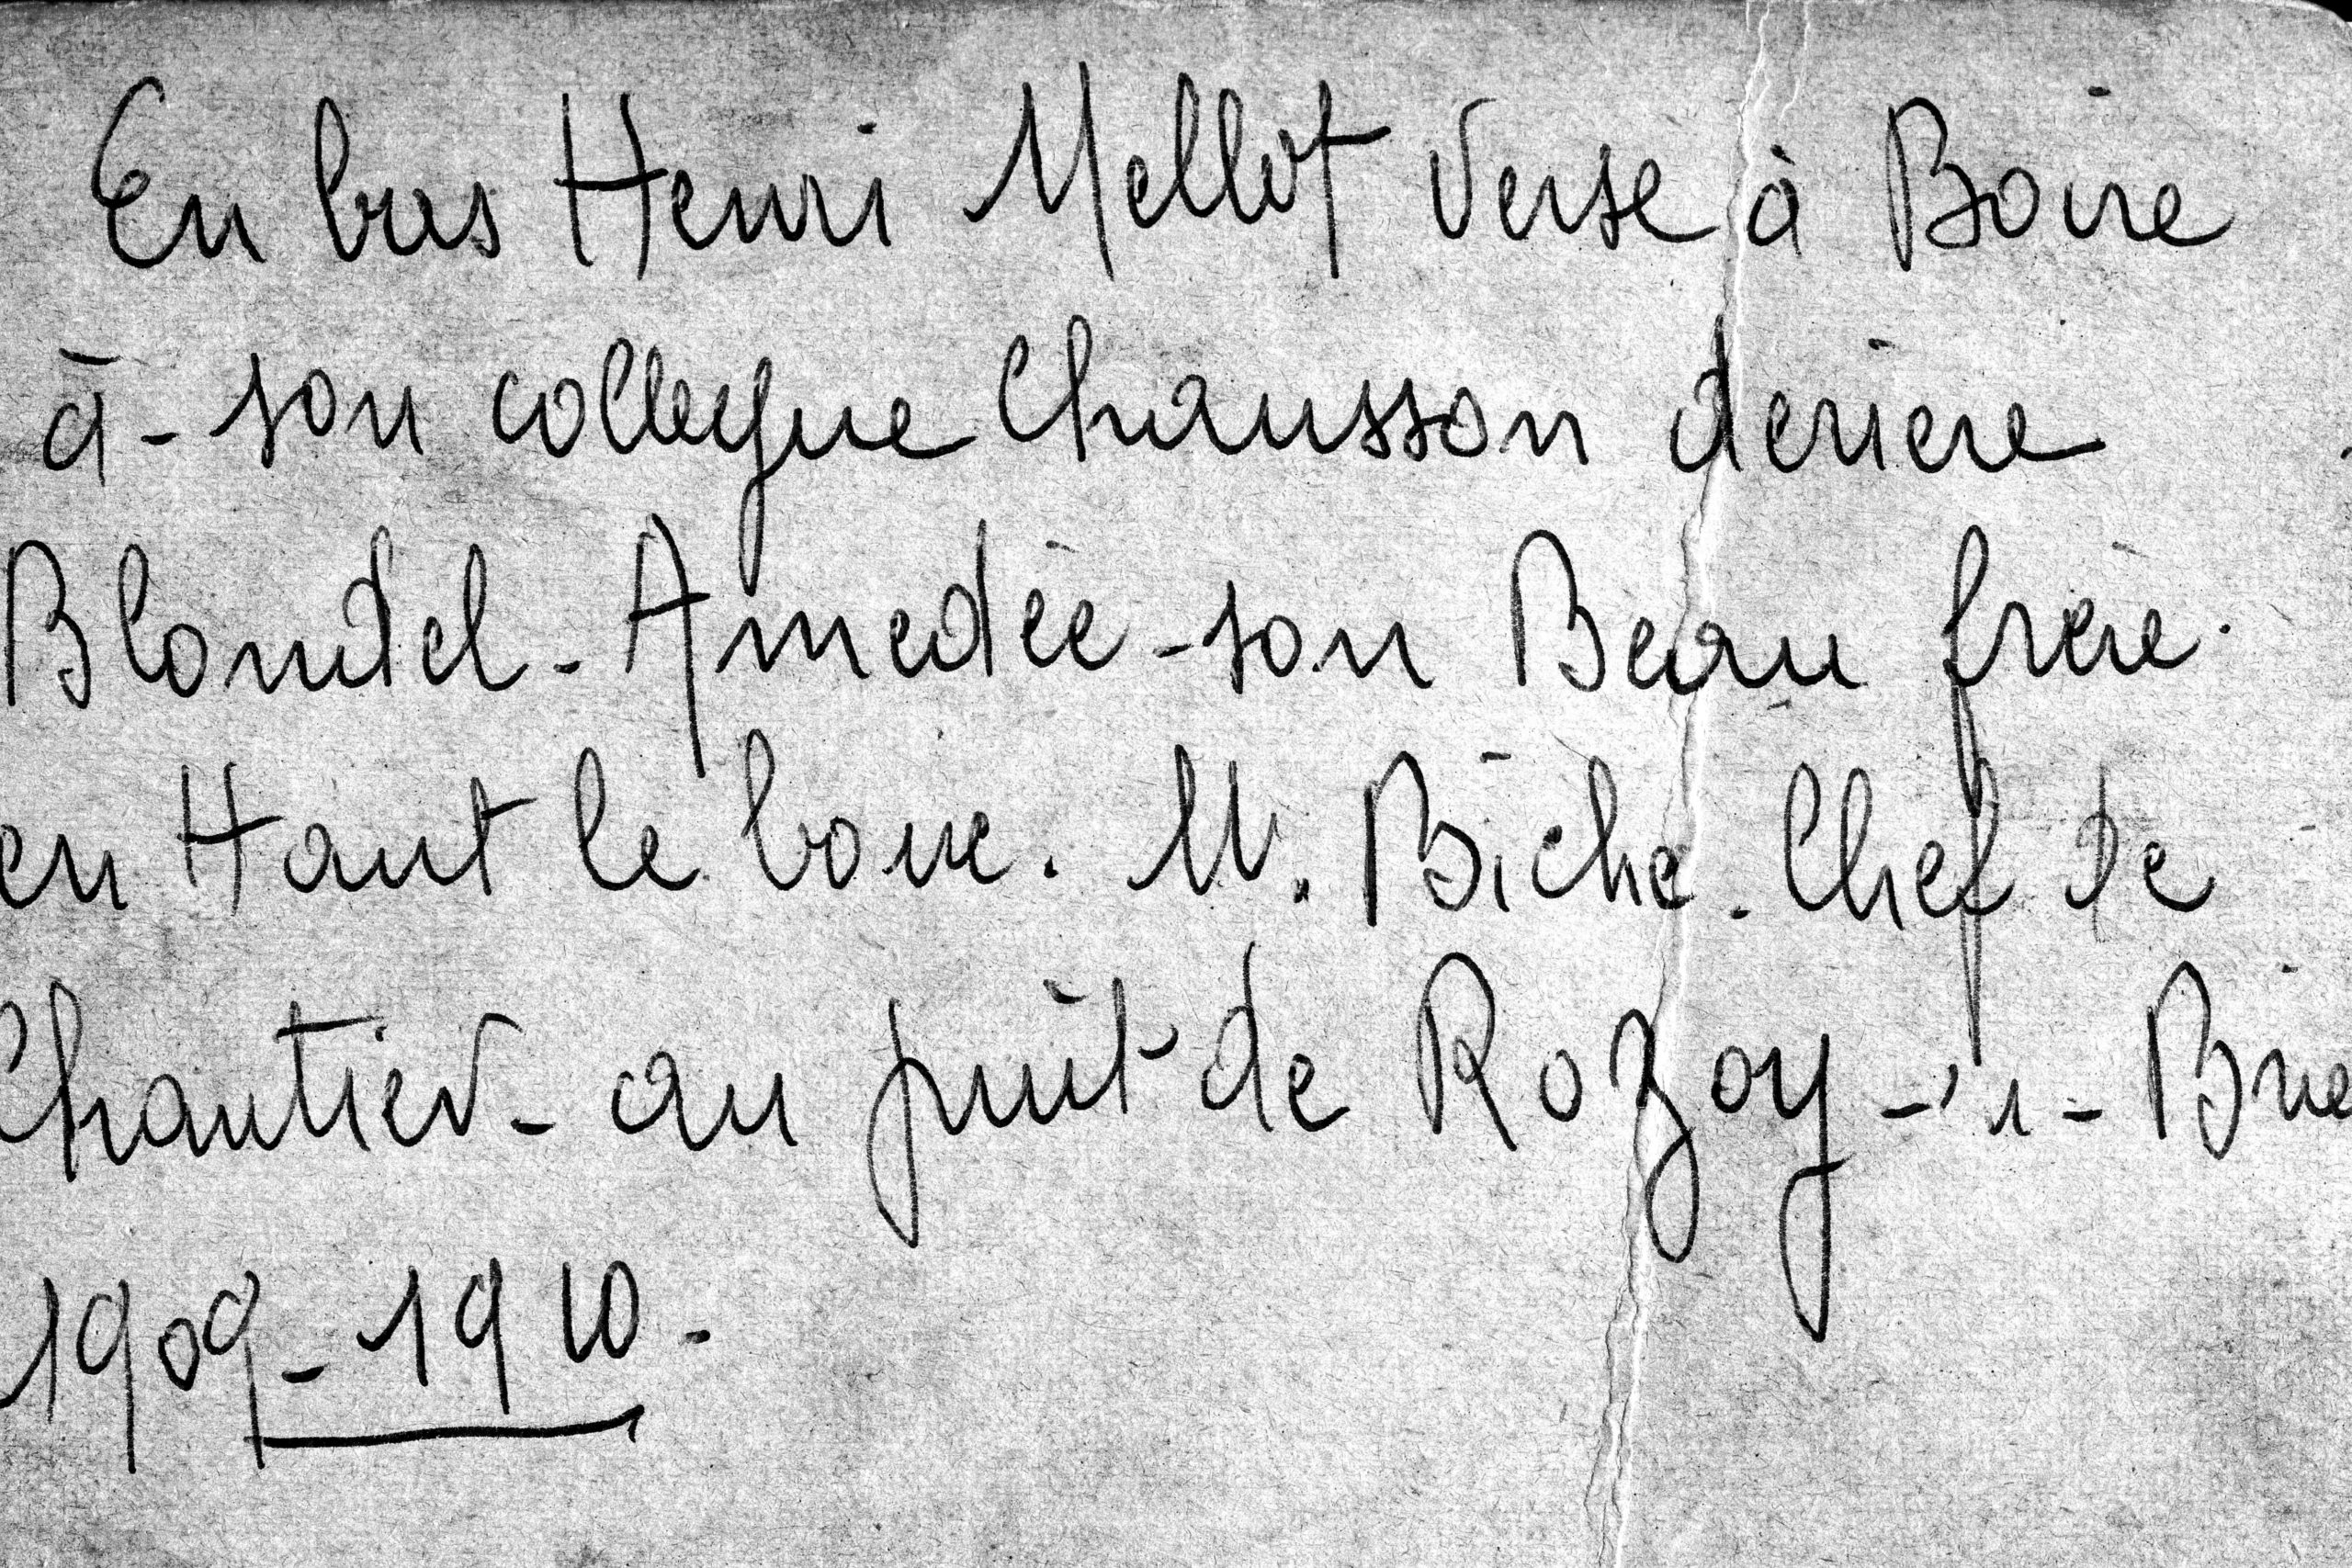 En bas Henri Mellot verse à Boire
à - son collegue Chausson deriere
Blondel - Amedée - son Beau frère.
en Haut le bouc. M. Biche. Chef de
Chantier - au puit de Rozoy - 'n - Brie
1909 - 1910 -